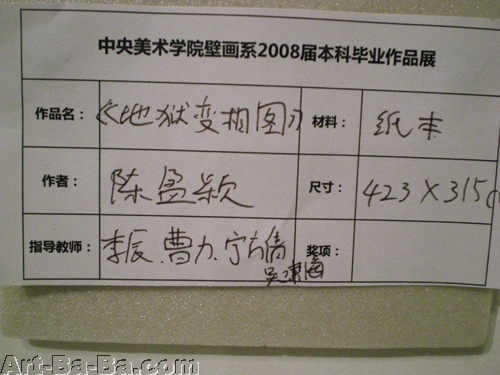 中央美术学院壁画系2008届本科毕业作品展
作品名： 《地狱变相图》 材料： 纸本
作者： 陈盈颖 尺寸： 423X315c
指导教师： 李辰、曹力、宁方倩 奖项：
吴啸海
Art-Ba-Ba.com